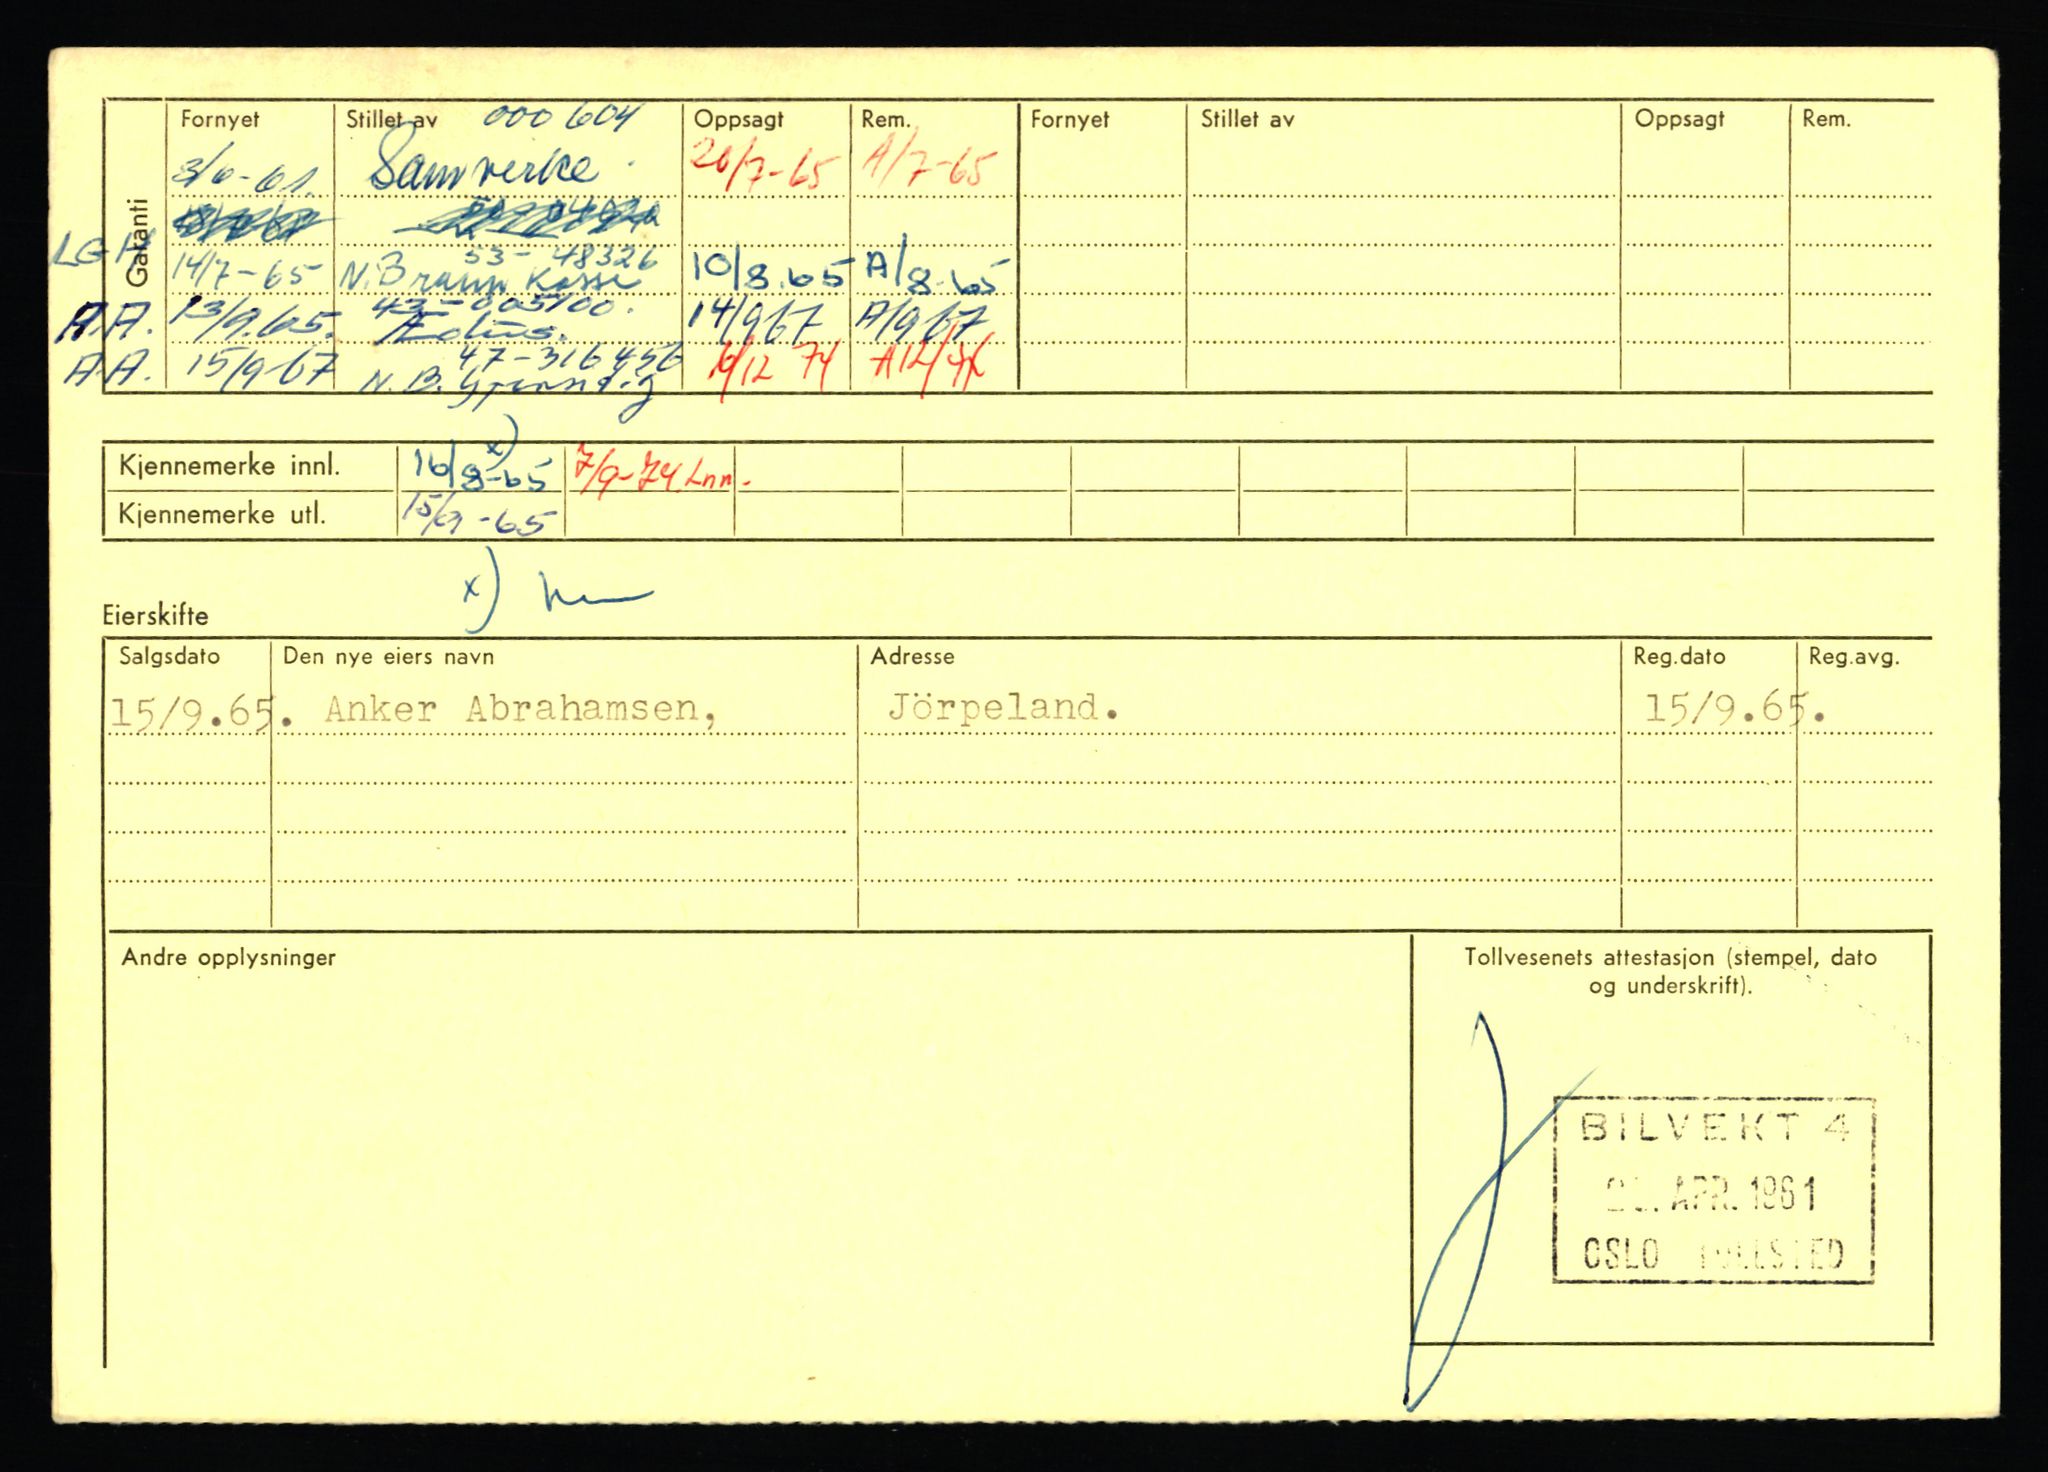 Garanti
Fornyet Stillet av 000 604 Oppsagt Rem. Fornyet Stillet av Oppsagt Rem.
3/6-61. Samverke. 20/7-65 A/7-65
53-48326
LGH 14/7-65 N. Brann Kasse 10/8.65 A/8-65
43-005100.
A.A. 13/9.65. Æolus. 14/9 67 A/9 67
47-316456
A.A. 15/9-67 N.B. Gjensidig 6/12 74 A12/74
Kjennemerke innl. 16/8-65 x) 7/9-74. Lnn.
Kjennemerke utl. 15/9-65
x)
Eierskifte
Salgsdato Den nye eiers navn Adresse Reg.dato Reg.avg.
15/9.65. Anker Abrahamsen, Jörpeland. 15/9.65.
Andre opplysninger
Tollvesenets attestasjon (stempel, dato
og underskrift).
BILVEKT 4
APR. 1961
OSLO TOLLSTED